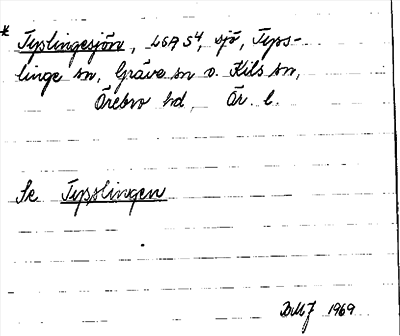 * Tyslingesjön, LSA S4, sjö, Tyss-
linge sn, Gräve sn o. Kils sn,
Örebro hd, Ör. l.
Se Tysslingen
BMJ 1969